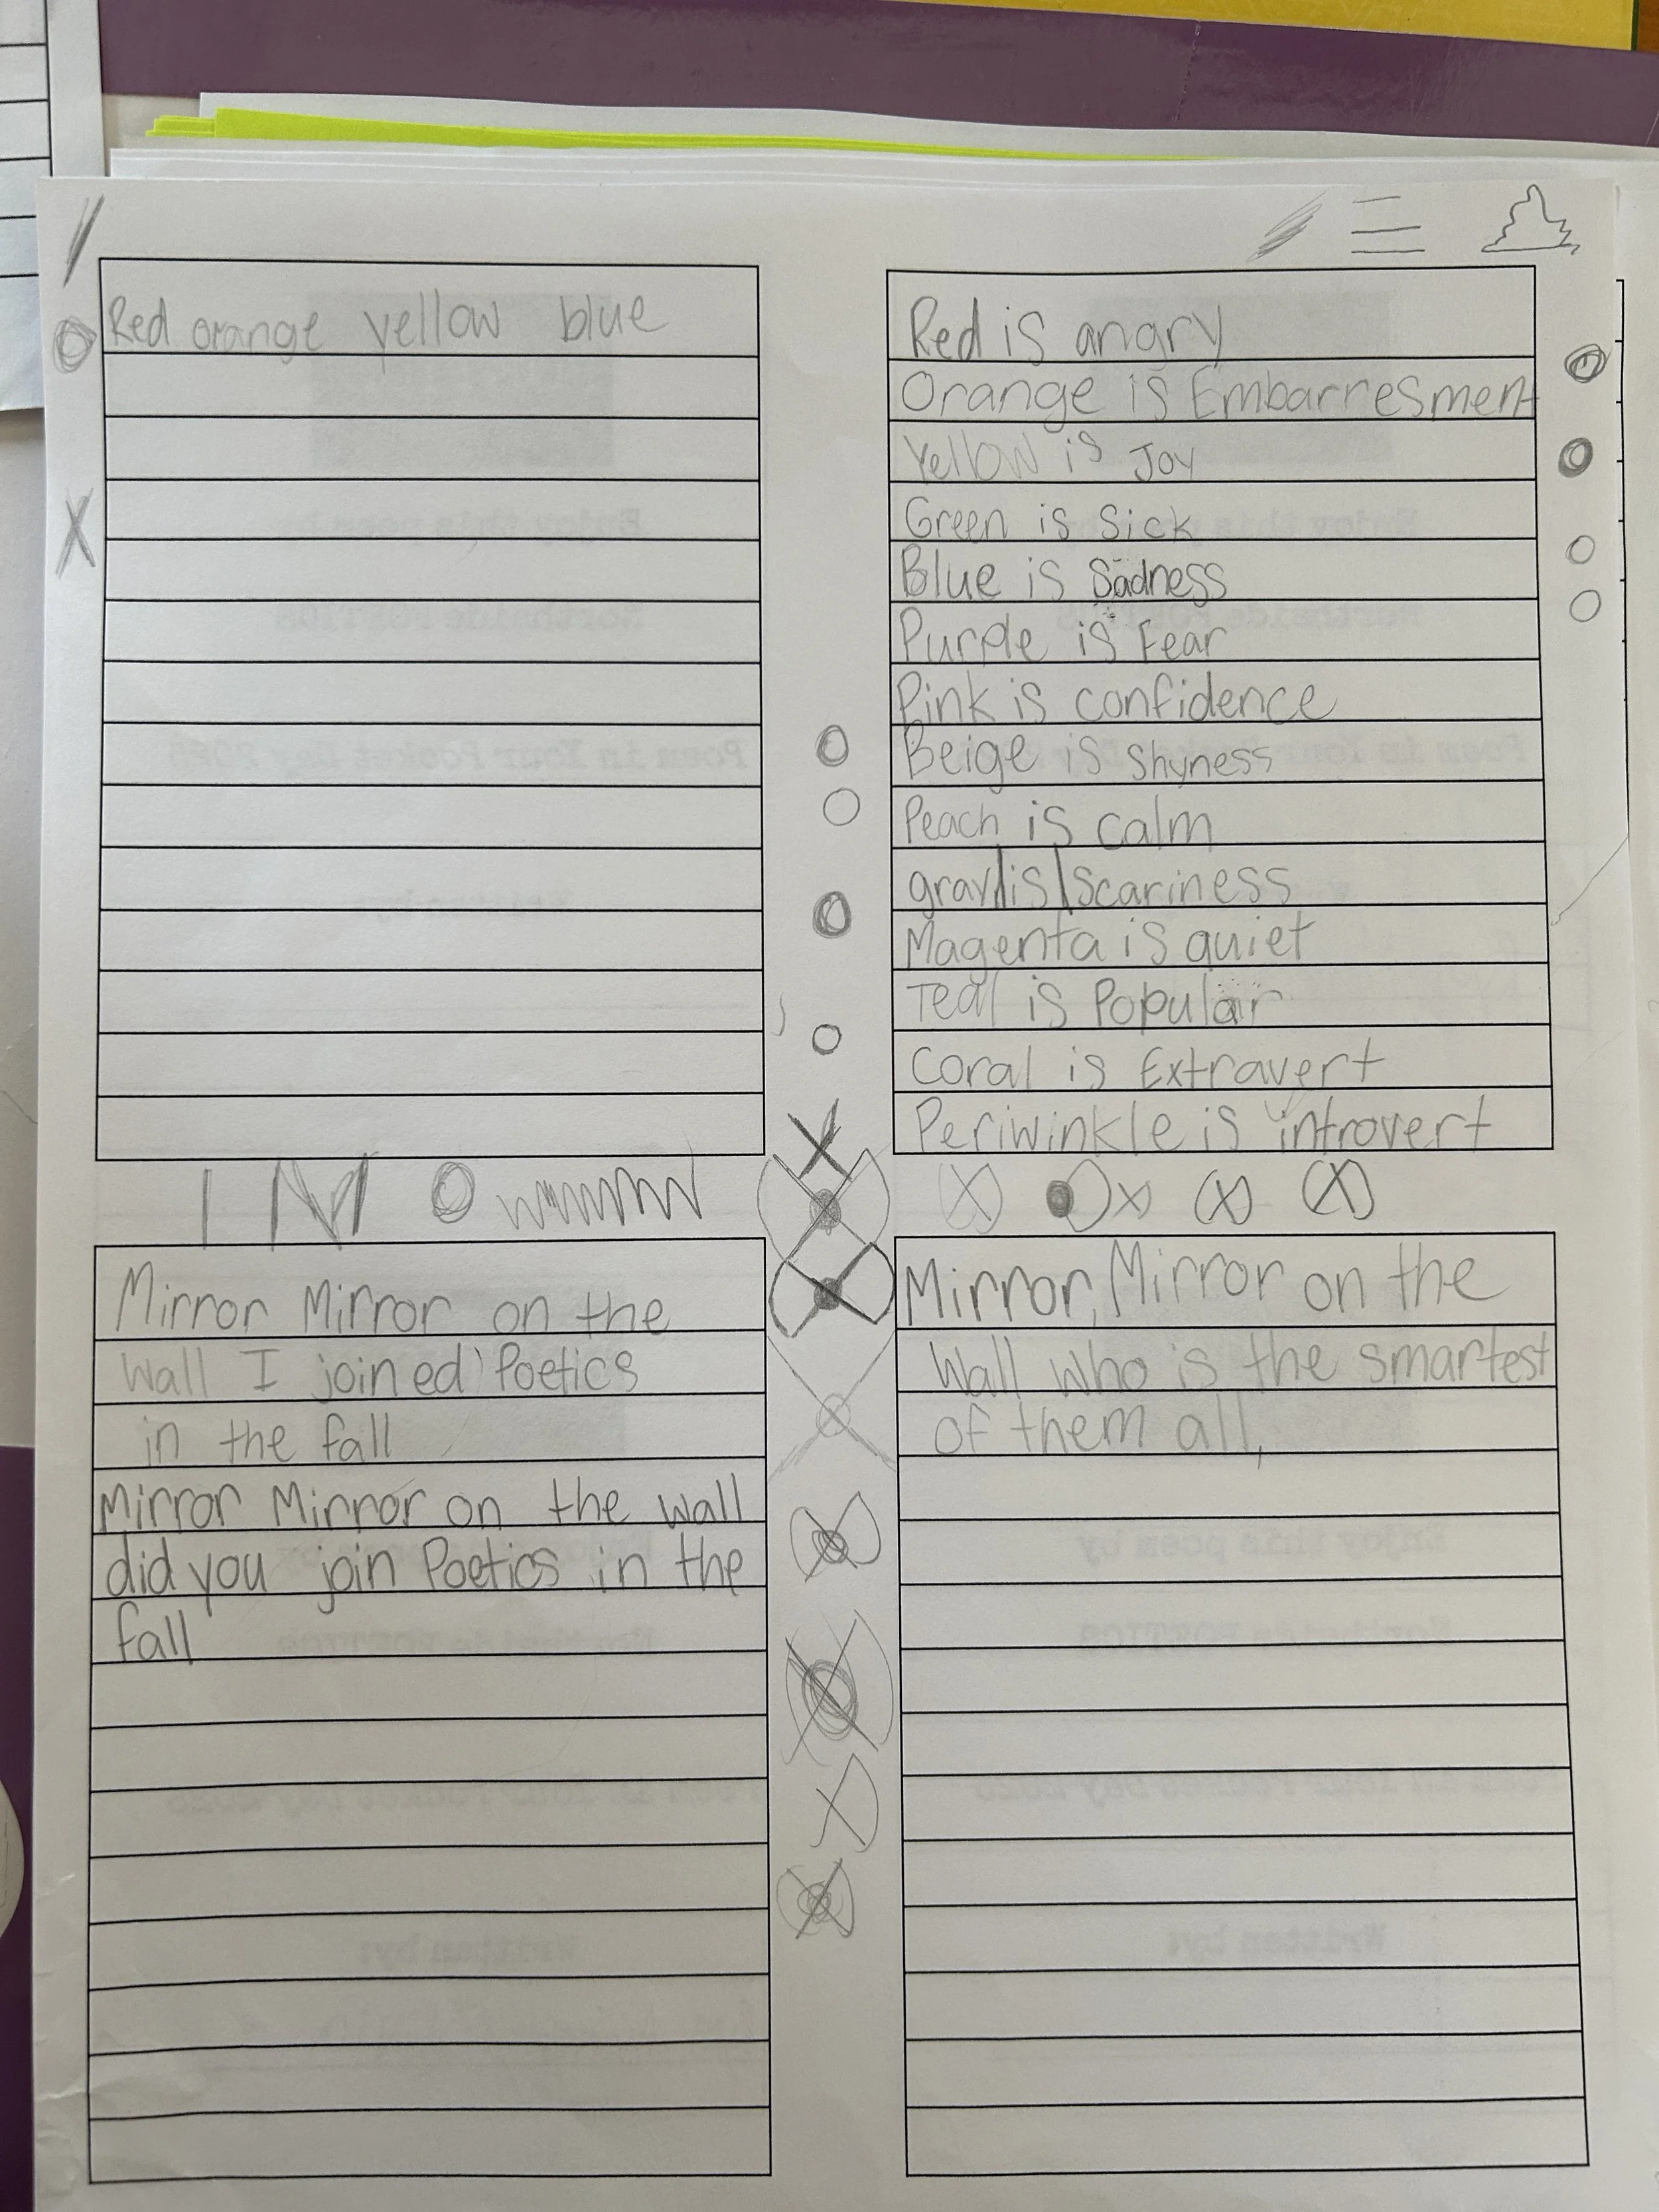 Red orange yellow blue
Red is angry
Orange is Embarresment
Yellow is Joy
Green is Sick
Blue is Sadness
Purple is Fear
Pink is confidence
Beige is Shyness
Peach is calm
gray is scariness
Magenta is quiet
Teal is Popular
Coral is Extravert
Periwinkle is introvert
Mirror Mirror on the
wall I joined Poetics
in the fall
Mirror Mirror on the wall
did you join Poetics in the
fall
Mirror, Mirror on the
Wall who is the smartest
of them all,